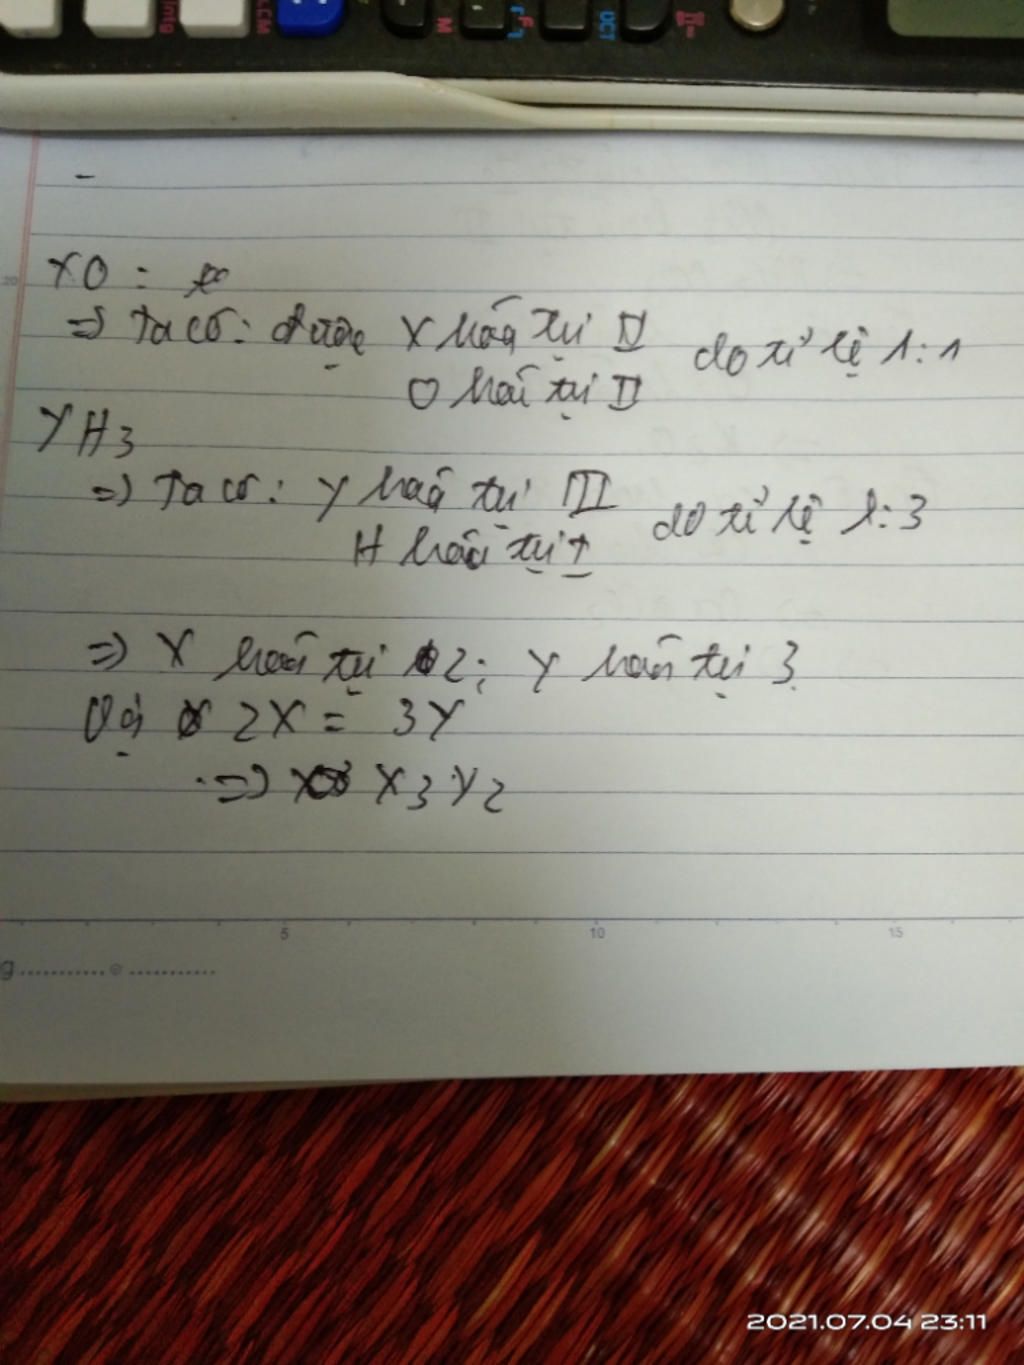 XO :
=) Ta có: được X hóa trị II do tỉ lệ 1:1
O hoá trị II
YH3
=) Ta có: Y hoá trị III do tỉ lệ 1:3
H hoá trị I
=) X hoá trị 2; Y hoá trị 3
Vậy 2X = 3Y
=) X3Y2
5 10 15
2021.07.04 23:11